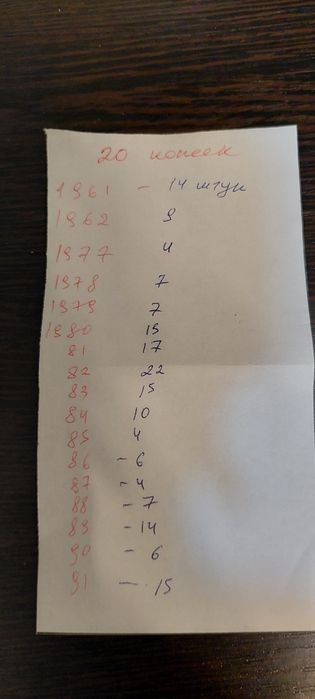 20 копеек
1961 - 14 штук
1962 9
1977 4
1978 7
1979 7
1980 15
81 17
82 22
83 15
84 10
85 4
86 - 6
87 - 4
88 - 7
89 - 14
90 - 6
91 - 15